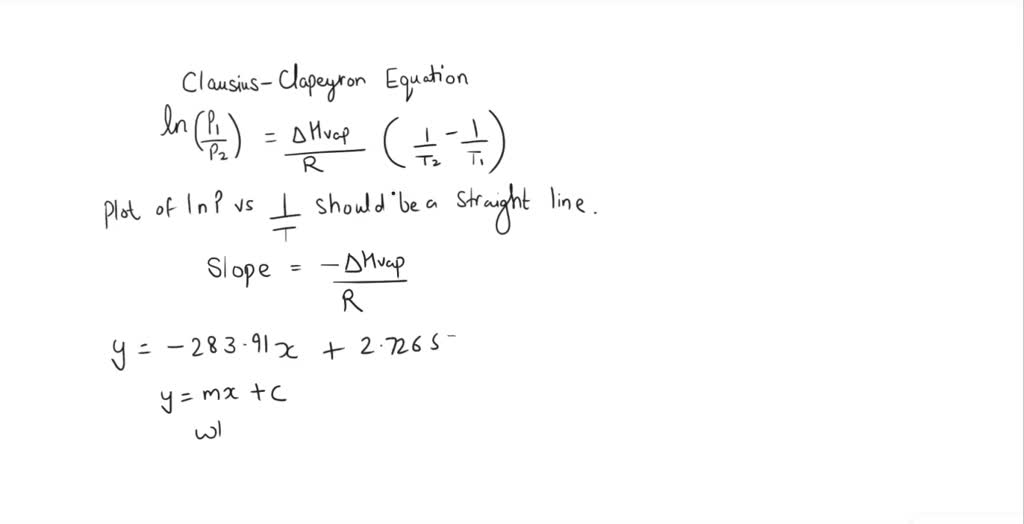 Clausius-Clapeyron Equation
ln(P₁/P₂) = ΔHvap/R (1/T₂ - 1/T₁)
Plot of lnP vs 1/T should be a straight line.
Slope = -ΔHvap/R
y = -283.91x + 2.7265
y = mx + c